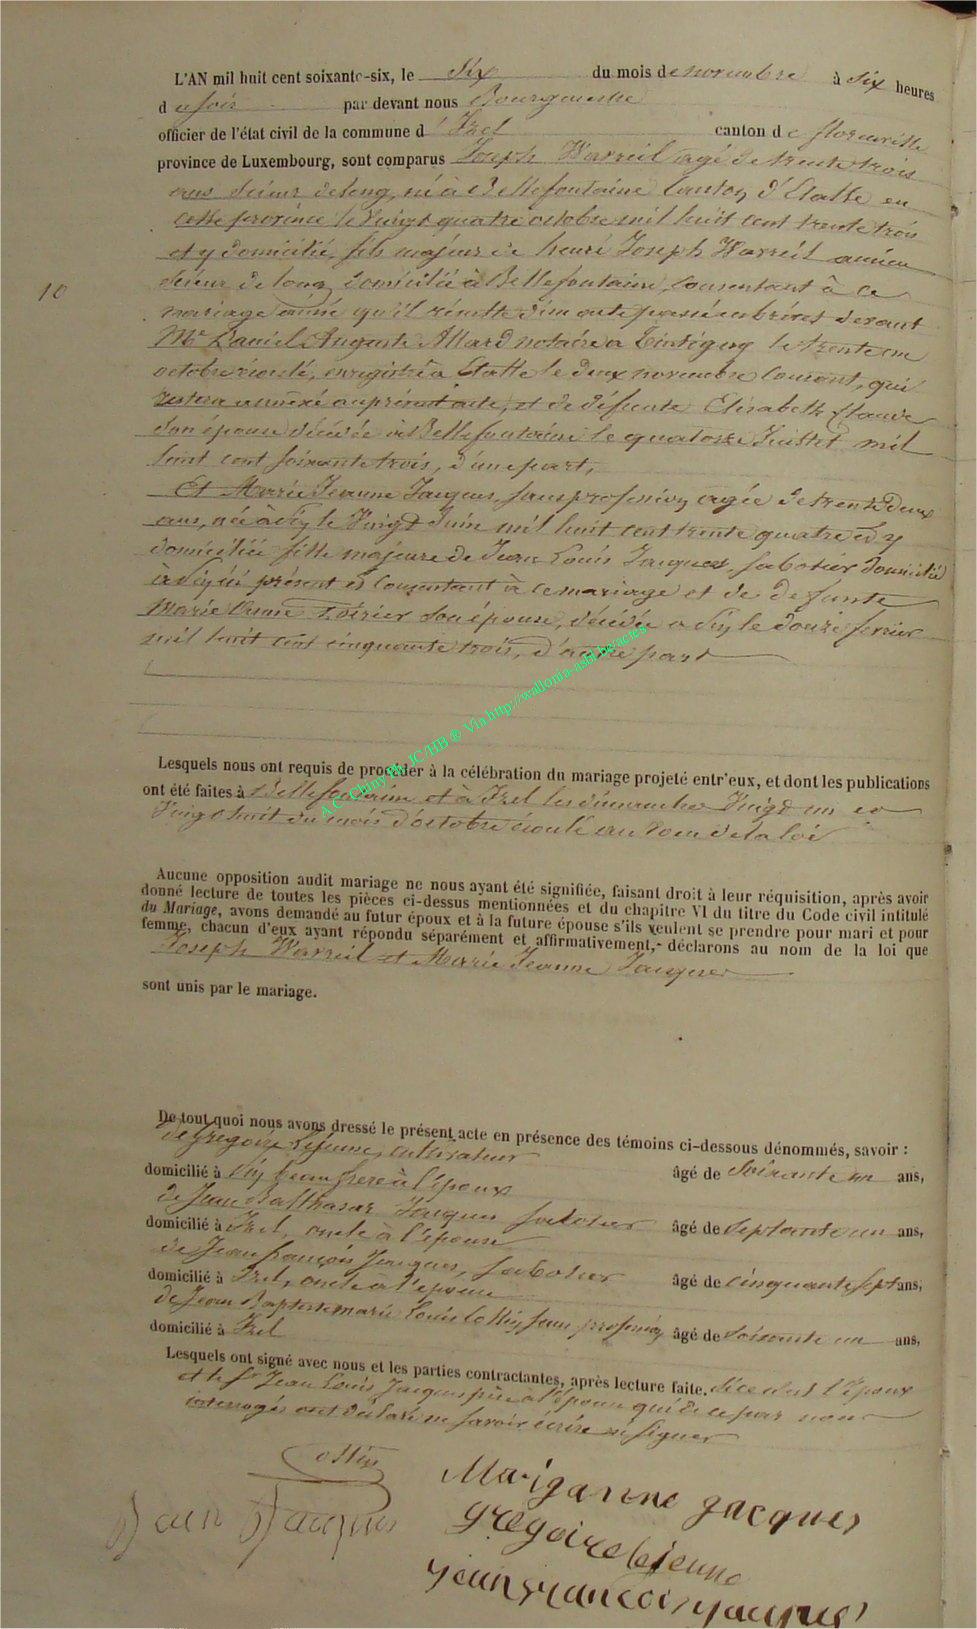 L'AN mil huit cent soixante-six, le six du mois de novembre à six heures
du soir par devant nous Bourgmestre
officier de l'état civil de la commune d'Izel canton de florenville
province de Luxembourg, sont comparus Joseph Warreil agé de trente trois
ans scieur de long, né à Bellefontaine canton d'Etalle en
cette province le vingt quatre octobre mil huit cent trente trois
et y domicilié, fils majeur de henri Joseph Warreil ancien
scieur de long domicilié à Bellefontaine, consentant à ce
10
mariage ainsi qu'il résulte d'un acte passé en brevet devant
Me Daniel Auguste Allard notaire à Tintigny le trente un
octobre écoulé, enregistré à Etalle le deux novembre courant, qui
restera annexé au présent acte, et de défunte Elisabeth Claude
son épouse décédée à Bellefontaine le quatorze Juillet mil
huit cent soixante trois, d'une part,
Et Marie Jeanne Jacques, sans profession agée de trente deux
ans, née à le vingt Juin mil huit cent trente quatre et y
domiciliée fille majeure de Jean Louis Jacques, sabotier domicilié
à ici présent et consentant à ce mariage et de defunte
Marie Anne son épouse, décédée a le douze fevrier
mil huit cent cinquante trois, d'autre part
Lesquels nous ont requis de procéder à la célébration du mariage projeté entr'eux, et dont les publications
ont été faites à Bellefontaine et à Izel les dimanches vingt un et
vingt huit du mois d'octobre écoulé au vœu de la loi
A.C. Chiny Ph. JC/HB ® Via http://wallonia-asbl.be/actes
Aucune opposition audit mariage ne nous ayant été signifiée, faisant droit à leur réquisition, après avoir
donné lecture de toutes les pièces ci-dessus mentionnées et du chapitre VI du titre du Code civil intitulé
du Mariage, avons demandé au futur époux et à la future épouse s'ils veulent se prendre pour mari et pour
femme, chacun d'eux ayant répondu séparément et affirmativement,- déclarons au nom de la loi que
Joseph Warreil et Marie Jeanne Jacques
sont unis par le mariage.
De tout quoi nous avons dressé le présent acte en présence des témoins ci-dessous dénommés, savoir :
de Gregoire Lejeune, cultivateur
domicilié à beau frere à l'époux âgé de soixante un ans,
de Jean Balthasar Jacques sabotier
domicilié à Izel, oncle à l'épouse âgé de septante un ans,
de Jean françois Jacques, sabotier
domicilié à Izel, oncle à l'épouse âgé de cinquante sept ans,
de Jean Baptiste marie Louis Collin, sans profession
domicilié à Izel âgé de soixante un ans,
Lesquels ont signé avec nous et les parties contractantes, après lecture faite. l'époux
et le Sr Jean Louis Jacques père à l'épouse qui de ce par nous
interrogés ont déclaré ne savoir écrire ni signer
Collin
Mariganne Jacques
Jean Jacques
Gregoire lejeune
jean francois jacques